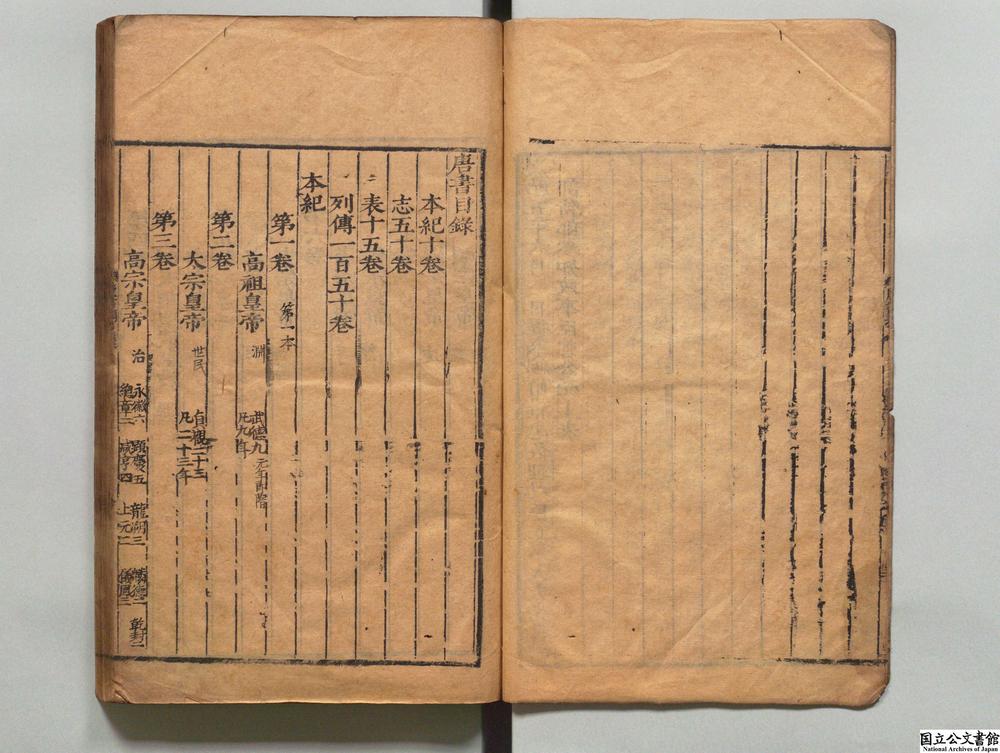 唐書目錄
本紀十卷
志五十卷
表十五卷
列傳一百五十卷
本紀
第一卷 第一本
高祖皇帝 淵 武德九 凡九年 元年
第二卷
太宗皇帝 世民 貞觀二十三 凡二十三年
第三卷
高宗皇帝 治 永徽六 顯慶五 龍朔三 麟德二 乾封二
總章二 咸亨四 上元二 儀鳳三
国立公文書館
National Archives of Japan